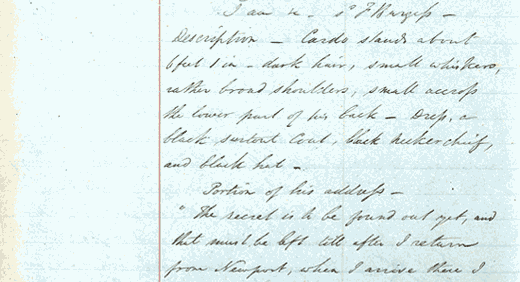 I am &c - s^d F Burgess -
Description - Cardo stands about
6 feet 1 in - dark hair, small whiskers,
rather broad shoulders, small accross
the lower part of his back - Dress, a
black surtout Coat, black neckerchief,
and black hat -
Portion of his address -
" The secret is to be found out yet, and
that must be left till after I return
from Newport, when I arrive there I